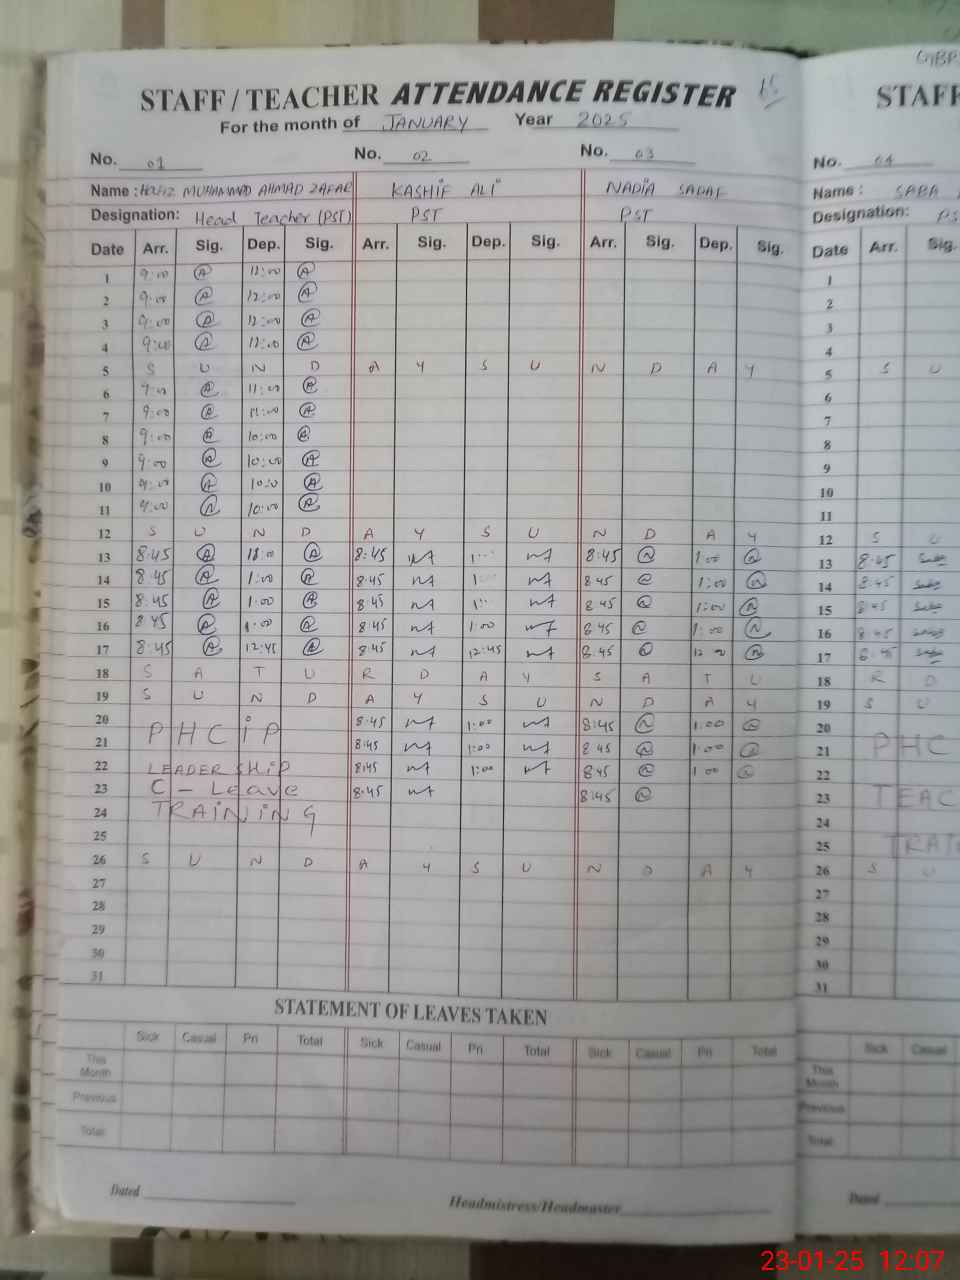 STAFF / TEACHER ATTENDANCE REGISTER
For the month of JANUARY Year 2025
No. 01 No. 02 No. 03
Name : HAFIZ MUHAMMAD AHMAD ZAFAR KASHIF ALI NADIA SADAF
Designation: Head Teacher (PST) PST PST
Date Arr. Sig. Dep. Sig. Arr. Sig. Dep. Sig. Arr. Sig. Dep. Sig.
1 9:00 11:00
2 9:00 12:00
3 9:00 12:00
4 9:00 12:00
5 S U N D A Y S U N D A Y
6 9:00 11:00
7 9:00 11:00
8 9:00 10:00
9 9:00 10:00
10 9:00 10:0
11 9:00 10:00
12 S U N D A Y S U N D A Y
13 8:45 8:45 8:45 1:00
14 8:45 1:00 8:45 8 45 1:00
15 8:45 1:00 8:45 8 45 1:00
16 8 45 1:00 8:45 1:00 8:45 1:00
17 8:45 12:45 8:45 12:45 8:45
18 S A T U R D A Y S A T U
19 S U N D A Y S U N D A Y
20 8:45 1:00 8:45 1:00
21 PHCiP 8:45 1:00 8 45 1:00
22 LEADERSHiP 8:45 1:00 8 45 1 00
23 C - Leave 8:45 8:45
24 TRAiNiNG
25
26 S U N D A Y S U N D A Y
27
28
29
30
31
STATEMENT OF LEAVES TAKEN
Sick Casual Pri Total Sick Casual Pri Total Sick Casual Pri Total
This Month
Previous
Total
Dated
Headmistress/Headmaster
STAFF
No. 04
Name : SABA
Designation: PS
Date Arr. Sig.
1
2
3
4
5 S U
6
7
8
9
10
11
12 S U
13 8:45
14 8:45
15 8 45
16 8 45
17 8:45
18 R D
19 S U
20
21 PHC
22
23 TEAC
24
25 TRAI
26 S U
27
28
29
30
31
Sick Casual
This Month
Previous
Total
Dated
23-01-25 12:07